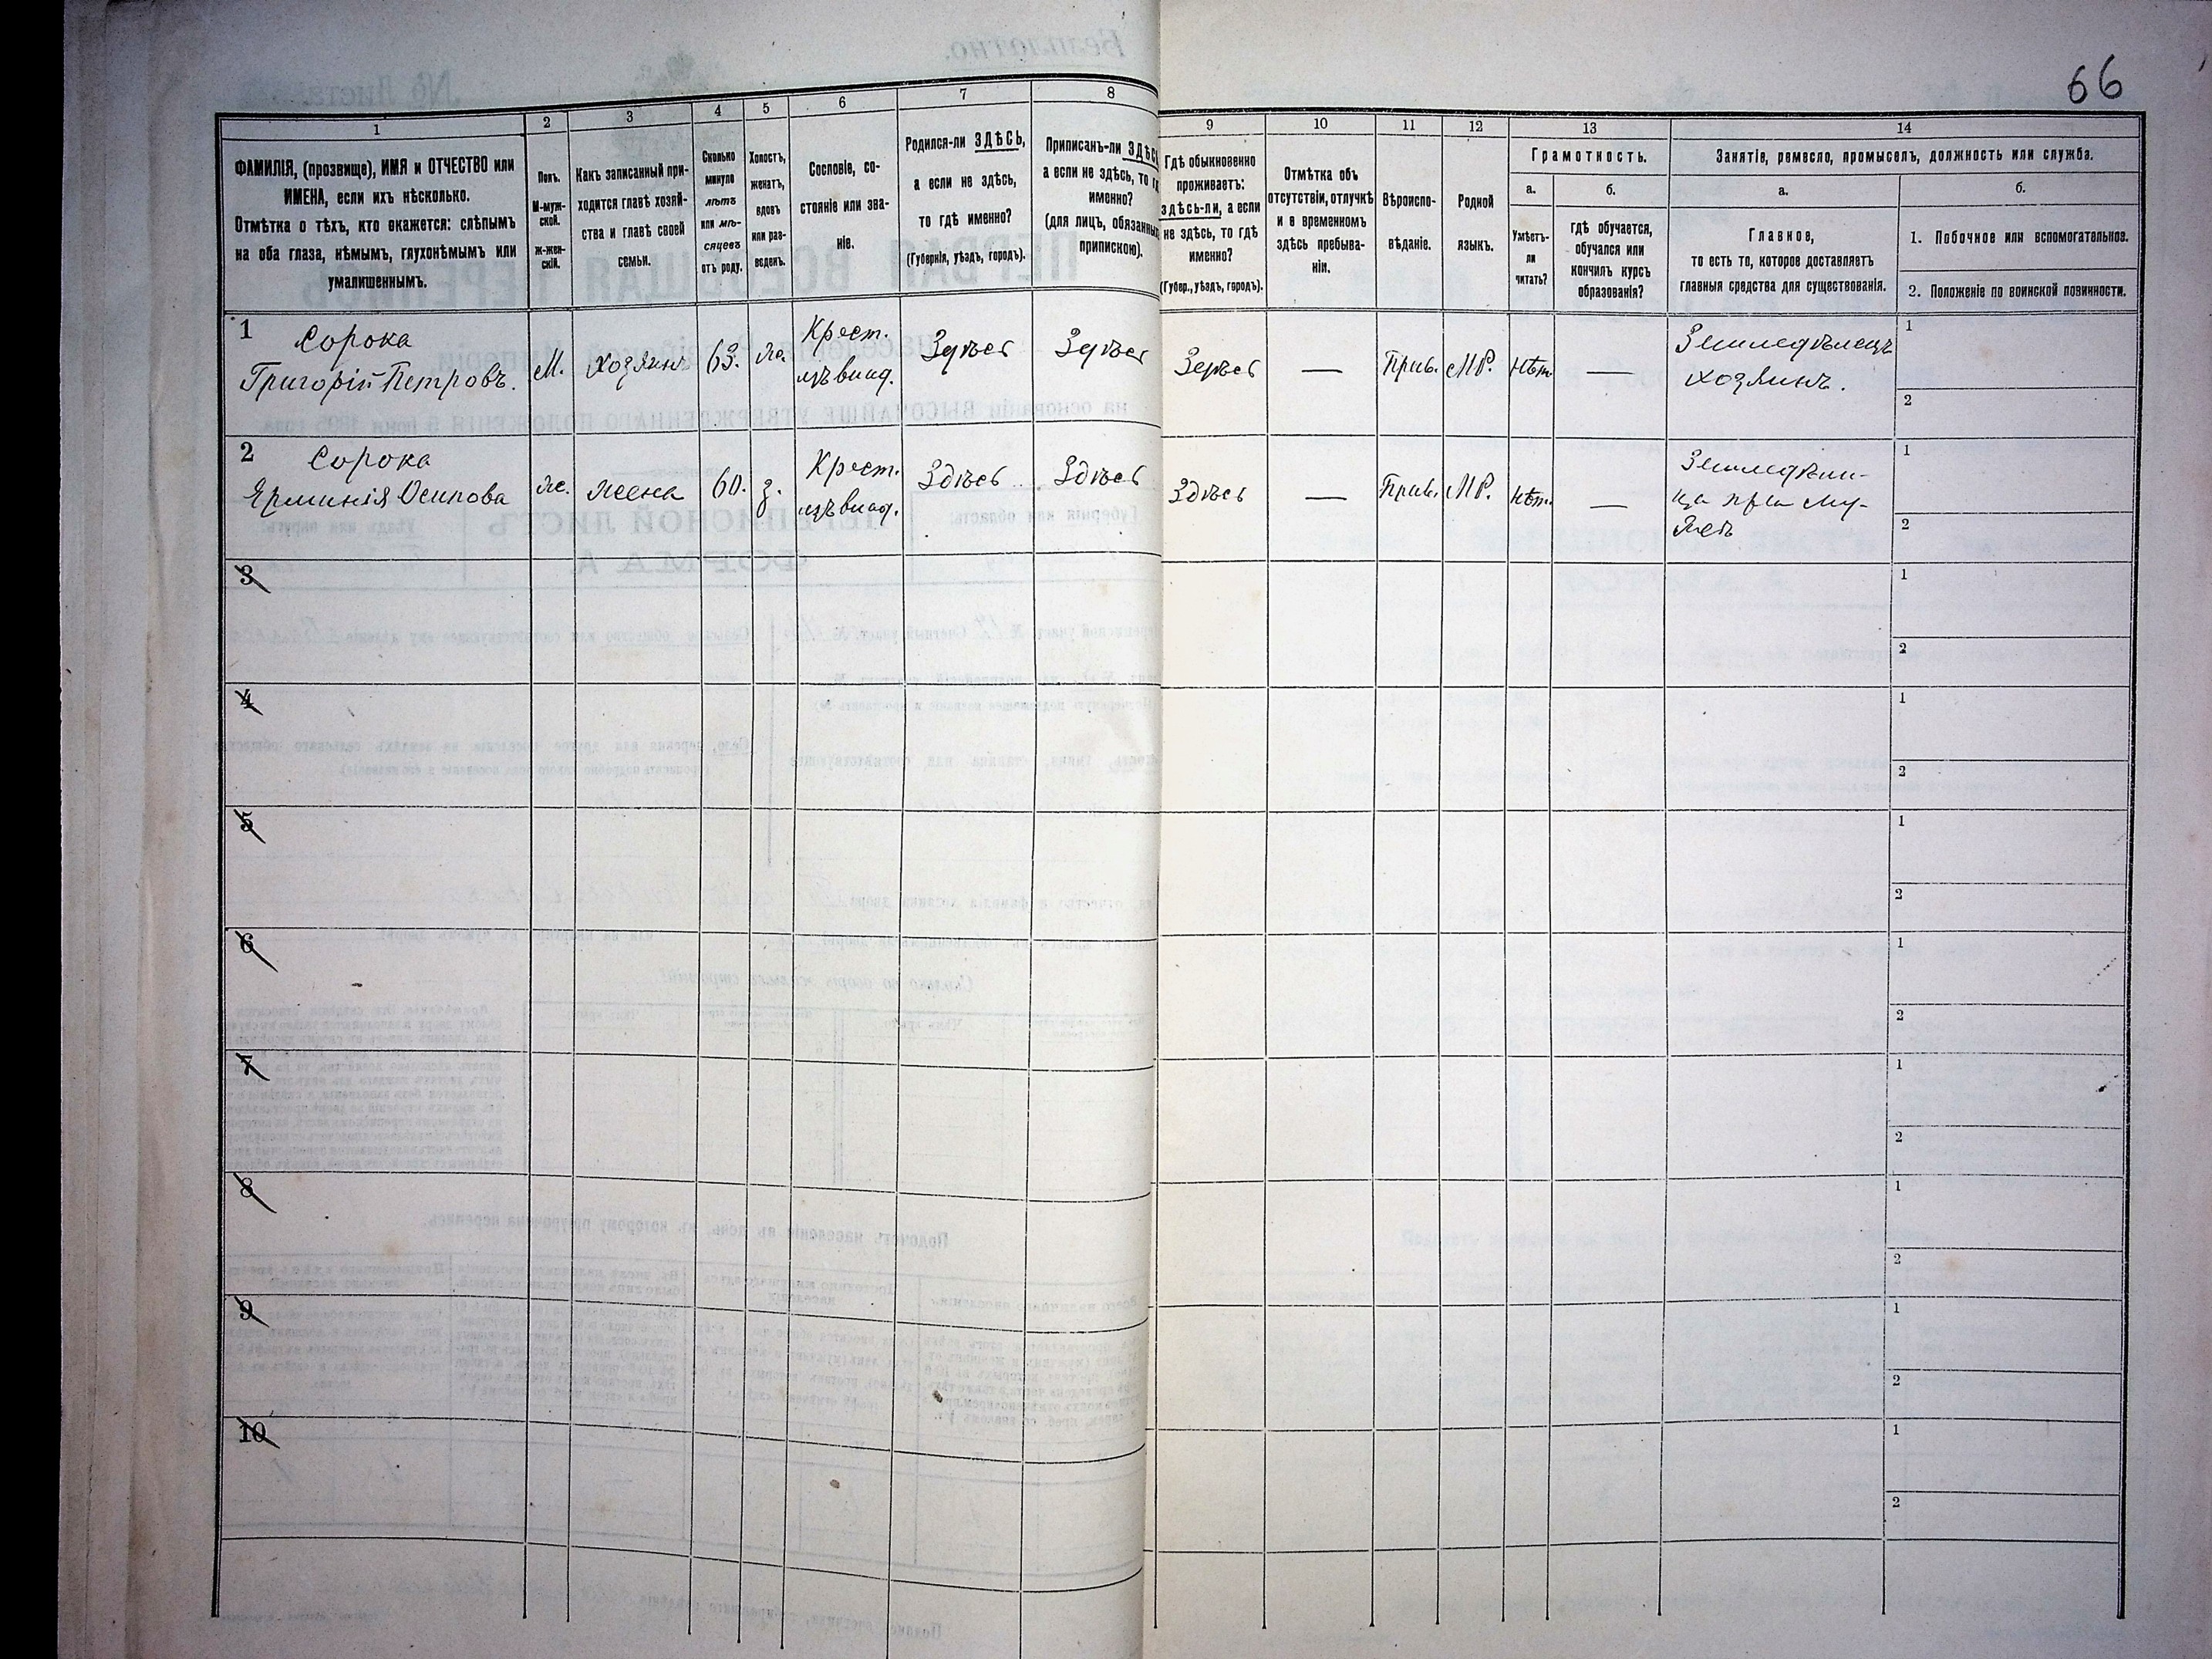 66
1
2
3
4
5
6
7
8
9
10
11
12
13
14
ФАМИЛІЯ, (прозвище), ИМЯ и ОТЧЕСТВО или
ИМЕНА, если ихъ нѣсколько.
Отмѣтка о тѣхъ, кто окажется: слѣпымъ
на оба глаза, нѣмымъ, глухонѣмымъ или
умалишеннымъ.
Полъ.
М-муж-
ской.
ж-жен-
скій.
Какъ записанный при-
ходится главѣ хозяй-
ства и главѣ своей
семьи.
Сколько
минуло
лѣтъ
или мѣ-
сяцевъ
отъ роду.
Холостъ,
женатъ,
вдовъ
или раз-
веденъ.
Сословіе, со-
стояніе или зва-
ніе.
Родился-ли ЗДѢСЬ,
а если не здѣсь,
то гдѣ именно?
(Губернія, уѣздъ, городъ).
Приписанъ-ли ЗДѢСЬ
а если не здѣсь, то
именно?
(для лицъ, обязанныхъ
припискою).
Гдѣ обыкновенно
проживаетъ:
здѣсь-ли, а если
не здѣсь, то гдѣ
именно?
(Губер., уѣздъ, городъ).
Отмѣтка объ
отсутствіи, отлучкѣ
и о временномъ
здѣсь пребыва-
ніи.
Вѣроиспо-
вѣданіе.
Родной
языкъ.
Грамотность.
а.
б.
Умѣетъ-
ли
читать?
гдѣ обучается,
обучался или
кончилъ курсъ
образованія?
Занятіе, ремесло, промыселъ, должность или служба.
а.
б.
Главное,
то есть то, которое доставляетъ
главныя средства для существованія.
1. Побочное или вспомогательное.
2. Положеніе по воинской повинности.
1 Сорока
Григорій Петровъ.
М.
Хозяинъ
63.
ж.
Крест.
изъ влад.
Здѣсь
Здѣсь
Здѣсь
—
Прав.
МР.
Нѣт.
—
Земледѣлецъ
хозяинъ.
1
2
2 Сорока
Ерминія Осипова
ж.
жена
60.
з.
Крест.
изъ влад.
Здѣсь
Здѣсь
Здѣсь
—
Прав.
МР.
Нѣт.
—
Земледѣли-
ца при му-
жѣ
1
2
3
1
2
4
1
2
5
1
2
6
1
2
7
1
2
8
1
2
9
1
2
10
1
2